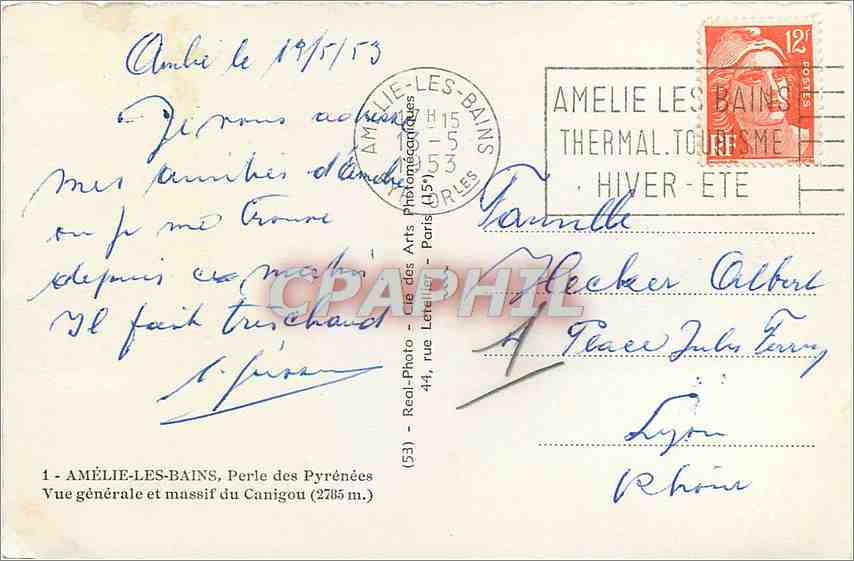 le 19/5/53
Je vous adresse
mes amitiés d'Amélie
ou je me trouve
depuis ce matin
Il fait très chaud
1 - AMÉLIE-LES-BAINS, Perle des Pyrénées
Vue générale et massif du Canigou (2785 m.)
(53) - Real-Photo - Cie des Arts Photomécaniques
44, rue Letellier - Paris (15°)
AMELIE-LES-BAINS
15
-5
1953
OR LES
AMELIE LES BAINS
THERMAL.TOURISME
HIVER-ETE
12F
POSTES
RF
Famille
Hecker Albert
Place Jules Ferry
Lyon
Rhône
1
CPAPHIL